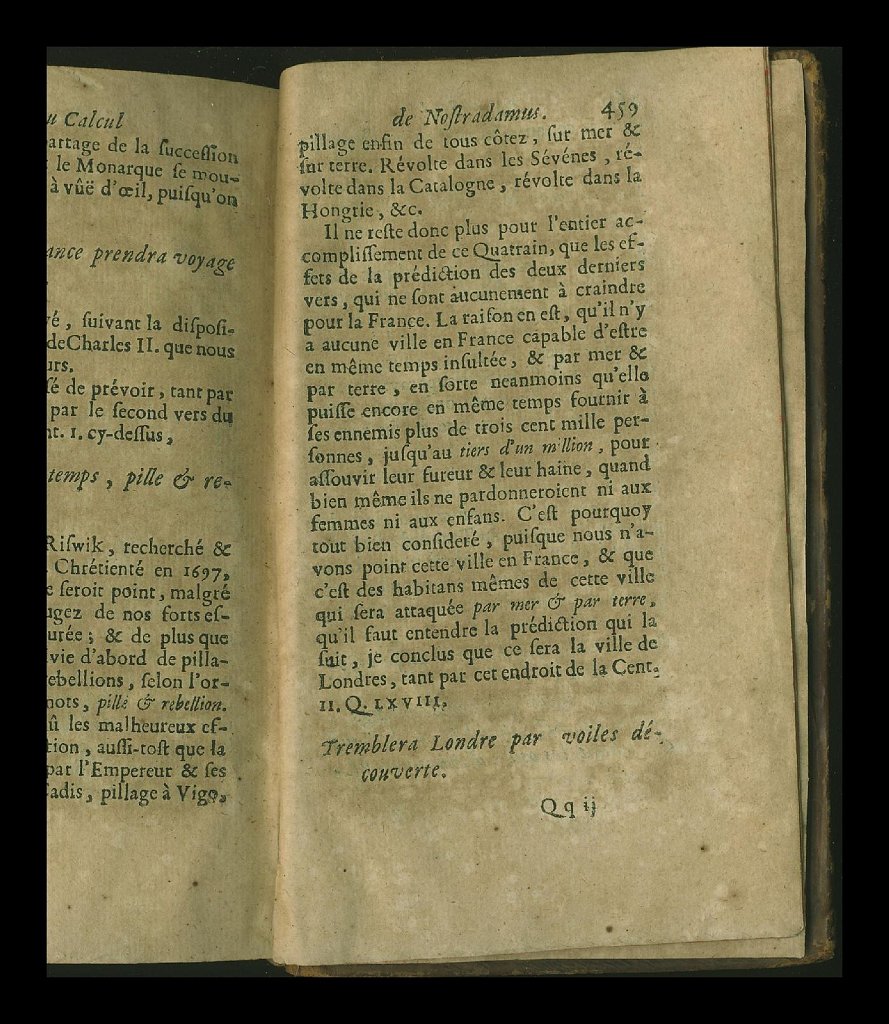 u Calcul
artage de la ſucceſſion
le Monarque ſe mou-
à vûë d'œil, puiſqu'on
ance prendra voyage
é, ſuivant la diſpoſi-
de Charles II. que nous
urs.
ſé de prévoir, tant par
par le ſecond vers du
nt. 1. cy-deſſus,
temps, pille & re-
Riſwik, recherché &
Chrétienté en 1697,
e ſeroit point, malgré
ugez de nos forts eſ-
urée; & de plus que
vie d'abord de pilla-
ebellions, ſelon l'or-
mots, pille & rebellion.
û les malheureux ef-
tion, auſſi-toſt que la
par l'Empereur & ſes
Cadis, pillage à Vigo,
de Noſtradamus. 459
pillage enfin de tous côtez, ſur mer &
ſur terre. Révolte dans les Sévénes, ré-
volte dans la Catalogne, révolte dans la
Hongrie, &c.
Il ne reſte donc plus pour l'entier ac-
compliſſement de ce Quatrain, que les ef-
fets de la prédiction des deux derniers
vers, qui ne ſont aucunement à craindre
pour la France. La raiſon en eſt, qu'il n'y
a aucune ville en France capable d'eſtre
en même temps inſultée, & par mer &
par terre, en ſorte neanmoins qu'elle
puiſſe encore en même temps fournir à
ſes ennemis plus de trois cent mille per-
ſonnes, juſqu'au tiers d'un million, pour
aſſouvir leur fureur & leur haine, quand
bien même ils ne pardonneroient ni aux
femmes ni aux enfans. C'eſt pourquoy
tout bien conſideré, puiſque nous n'a-
vons point cette ville en France, & que
c'eſt des habitans mêmes de cette ville
qui ſera attaquée par mer & par terre,
qu'il faut entendre la prédiction qui la
ſuit, je conclus que ce ſera la ville de
Londres, tant par cet endroit de la Cent.
II. Q. LXVIII.
Tremblera Londre par voiles dé-
couverte.
Qq ij